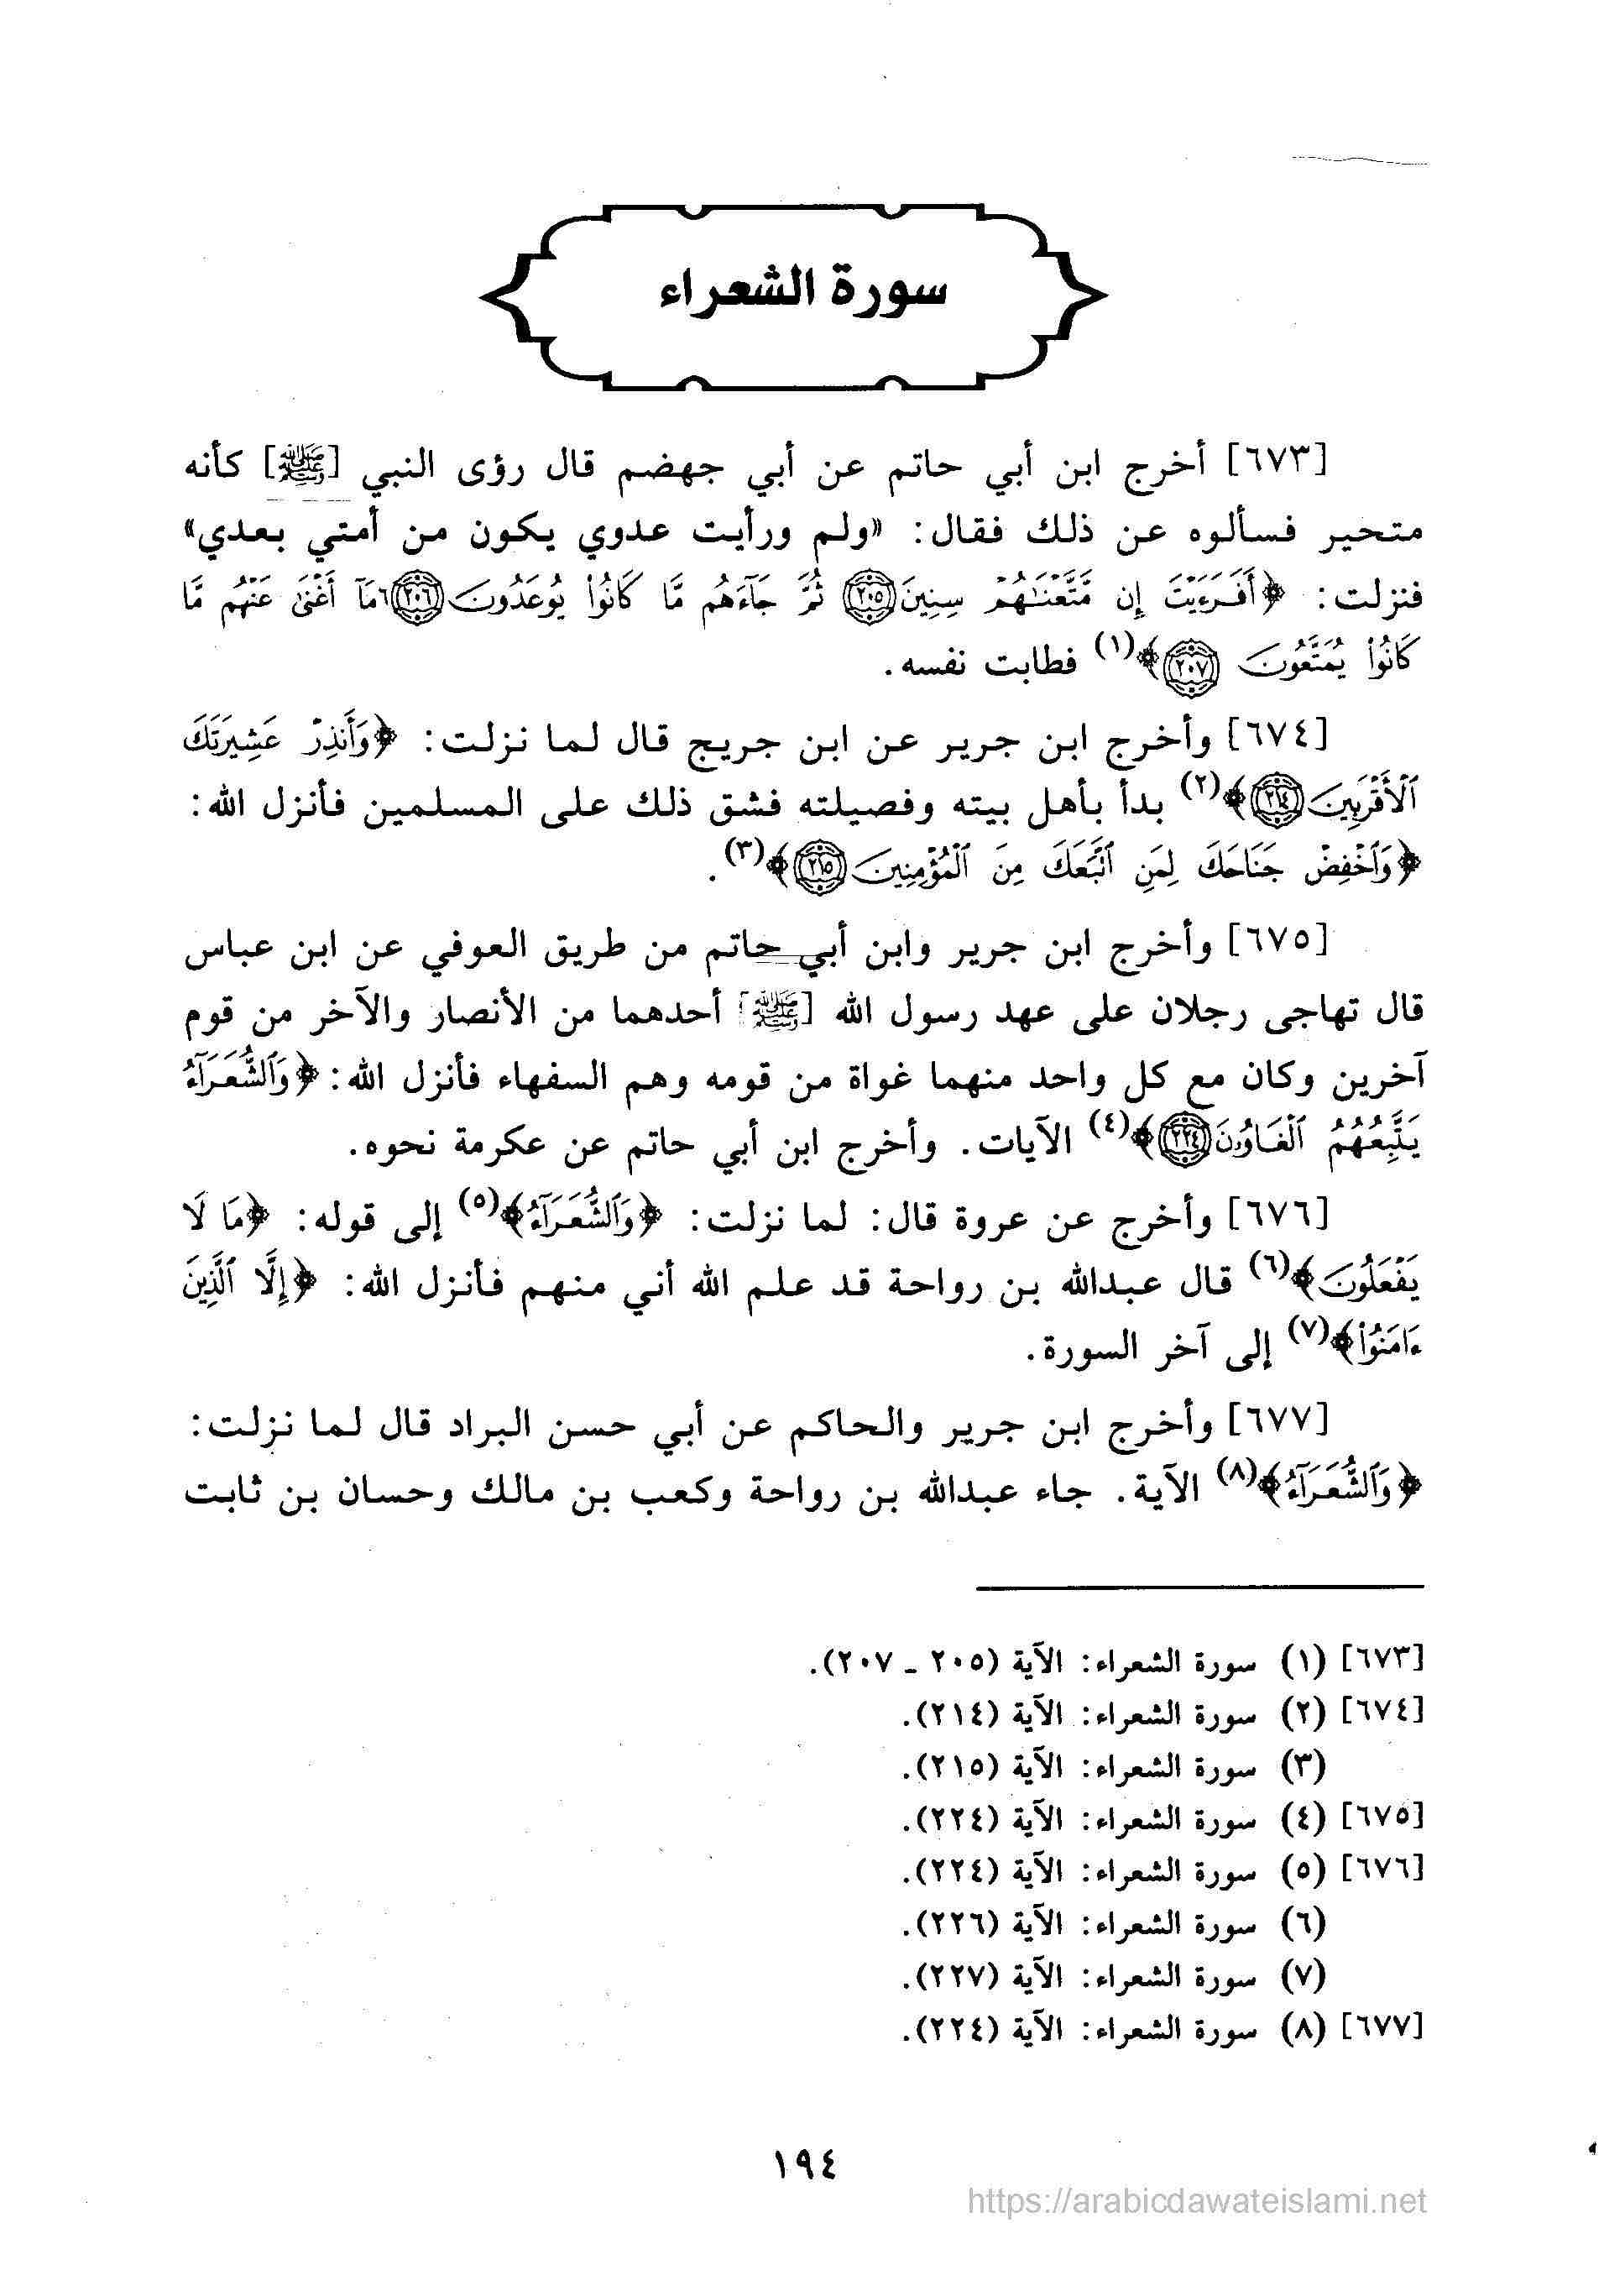 سورة الشعراء
[٦٧٣] أخرج ابن أبي حاتم عن أبي جهضم قال رؤى النبي [ﷺ] كأنه
متحير فسألوه عن ذلك فقال: «ولم ورأيت عدوي يكون من أمتي بعدي»
فنزلت: ﴿أَفَرَءَيْتَ إِن مَّتَّعْنَٰهُمْ سِنِينَ ٢٠٥ ثُمَّ جَآءَهُم مَّا كَانُوا۟ يُوعَدُونَ ٢٠٦ مَآ أَغْنَىٰ عَنْهُم مَّا
كَانُوا۟ يُمَتَّعُونَ ٢٠٧﴾(١) فطابت نفسه.
[٦٧٤] وأخرج ابن جرير عن ابن جريج قال لما نزلت: ﴿وَأَنذِرْ عَشِيرَتَكَ
ٱلْأَقْرَبِينَ ٢١٤﴾(٢) بدأ بأهل بيته وفصيلته فشق ذلك على المسلمين فأنزل الله:
﴿وَٱخْفِضْ جَنَاحَكَ لِمَنِ ٱتَّبَعَكَ مِنَ ٱلْمُؤْمِنِينَ ٢١٥﴾(٣).
[٦٧٥] وأخرج ابن جرير وابن أبي حاتم من طريق العوفي عن ابن عباس
قال تهاجى رجلان على عهد رسول الله [ﷺ] أحدهما من الأنصار والآخر من قوم
آخرين وكان مع كل واحد منهما غواة من قومه وهم السفهاء فأنزل الله: ﴿وَٱلشُّعَرَآءُ
يَتَّبِعُهُمُ ٱلْغَاوُۥنَ ٢٢٤﴾(٤) الآيات. وأخرج ابن أبي حاتم عن عكرمة نحوه.
[٦٧٦] وأخرج عن عروة قال: لما نزلت: ﴿وَٱلشُّعَرَآءُ﴾(٥) إلى قوله: ﴿مَا لَا
يَفْعَلُونَ﴾(٦) قال عبدالله بن رواحة قد علم الله أني منهم فأنزل الله: ﴿إِلَّا ٱلَّذِينَ
ءَامَنُوا۟﴾(٧) إلى آخر السورة.
[٦٧٧] وأخرج ابن جرير والحاكم عن أبي حسن البراد قال لما نزلت:
﴿وَٱلشُّعَرَآءُ﴾(٨) الآية. جاء عبدالله بن رواحة وكعب بن مالك وحسان بن ثابت
[٦٧٣] (١) سورة الشعراء: الآية (٢٠٥ - ٢٠٧).
[٦٧٤] (٢) سورة الشعراء: الآية (٢١٤).
(٣) سورة الشعراء: الآية (٢١٥).
[٦٧٥] (٤) سورة الشعراء: الآية (٢٢٤).
[٦٧٦] (٥) سورة الشعراء: الآية (٢٢٤).
(٦) سورة الشعراء: الآية (٢٢٦).
(٧) سورة الشعراء: الآية (٢٢٧).
[٦٧٧] (٨) سورة الشعراء: الآية (٢٢٤).
١٩٤
https://arabicdawateislami.net